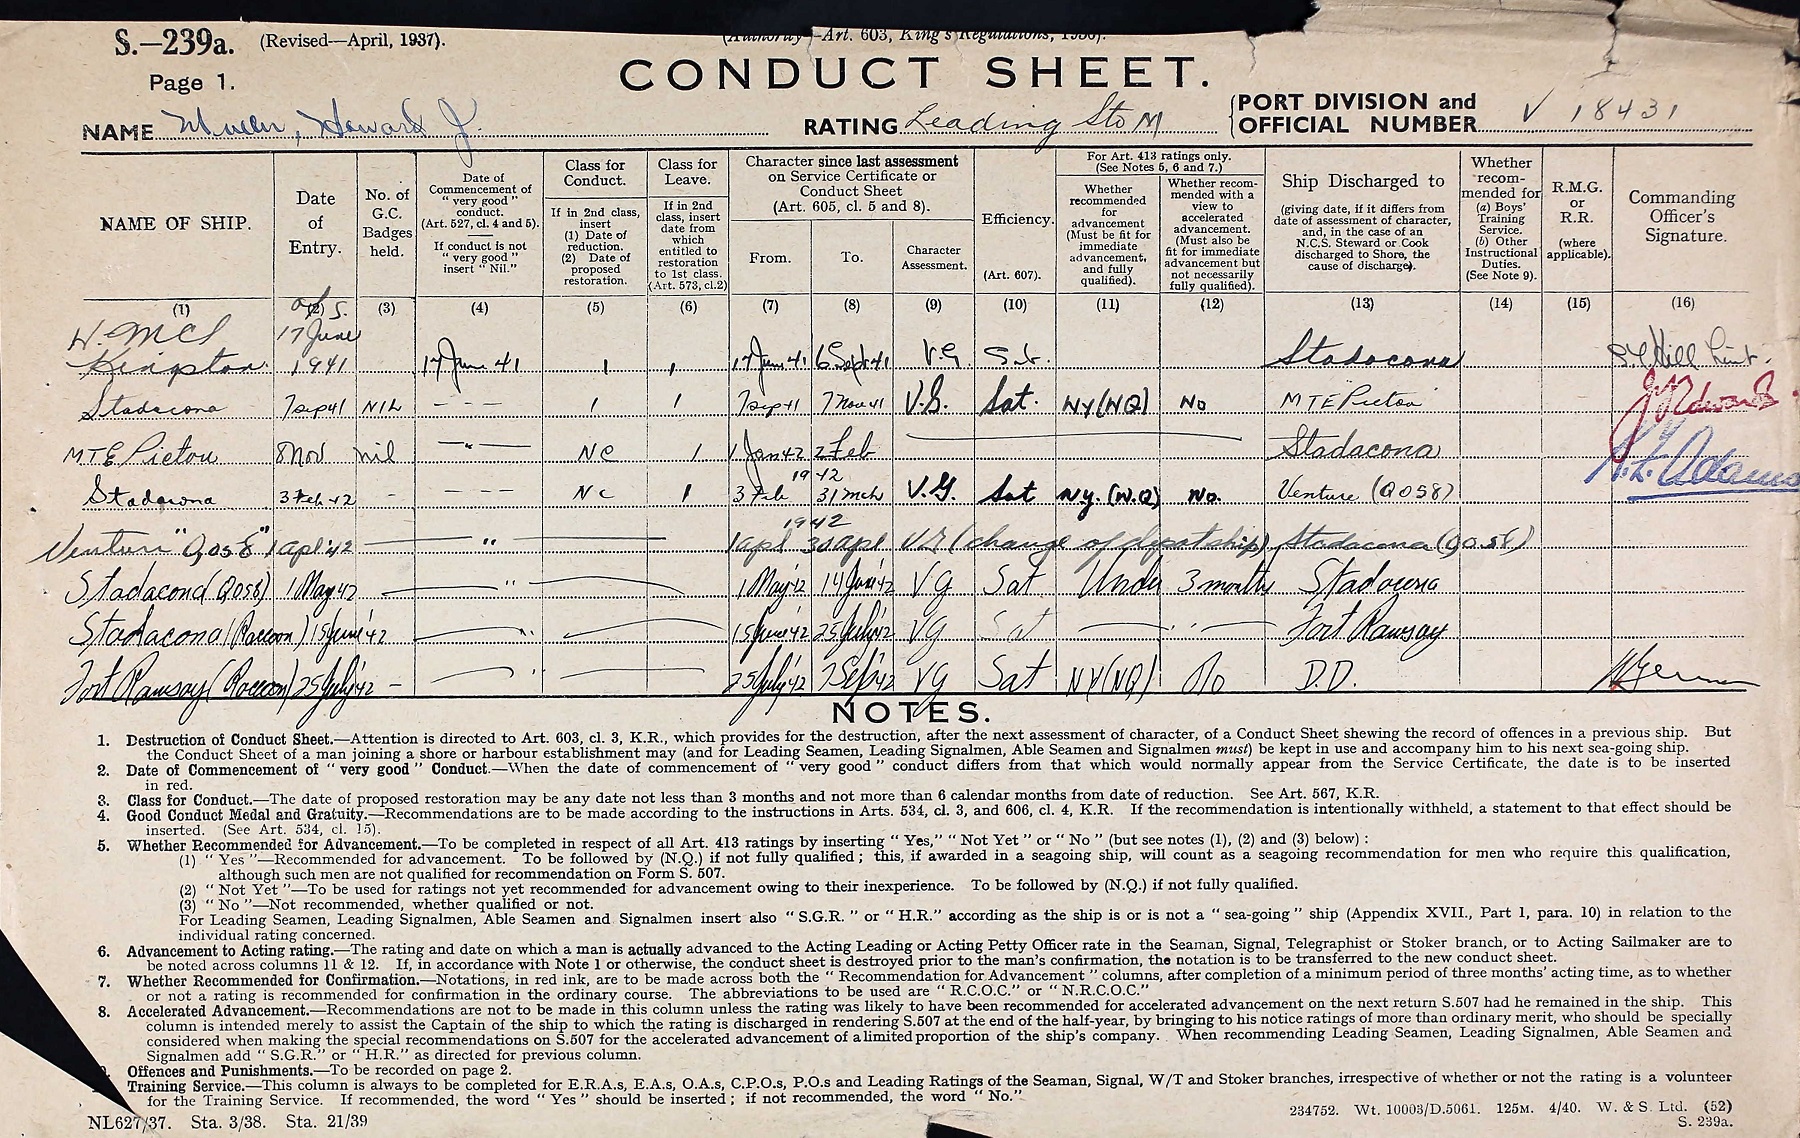 S.—239a. (Revised—April, 1937). (Authority—Art. 603, King's Regulations, 1936).
Page 1. CONDUCT SHEET.
NAME Howard J. RATING Leading Sto M PORT DIVISION and OFFICIAL NUMBER V 18431
NAME OF SHIP.
Date of Entry.
No. of G.C. Badges held.
Date of Commencement of "very good" conduct. (Art. 527, cl. 4 and 5). If conduct is not "very good" insert "Nil."
Class for Conduct. If in 2nd class, insert (1) Date of reduction. (2) Date of proposed restoration.
Class for Leave. If in 2nd class, insert date from which entitled to restoration to 1st class. (Art. 573, cl.2)
Character since last assessment on Service Certificate or Conduct Sheet (Art. 605, cl. 5 and 8).
From. To. Character Assessment.
Efficiency. (Art. 607).
For Art. 413 ratings only. (See Notes 5, 6 and 7.)
Whether recommended for advancement (Must be fit for immediate advancement, and fully qualified).
Whether recommended with a view to accelerated advancement. (Must also be fit for immediate advancement but not necessarily fully qualified).
Ship Discharged to (giving date, if it differs from date of assessment of character, and, in the case of an N.C.S. Steward or Cook discharged to Shore, the cause of discharge).
Whether recommended for (a) Boys' Training Service. (b) Other Instructional Duties. (See Note 9).
R.M.G. or R.R. (where applicable).
Commanding Officer's Signature.
(1) (2) (3) (4) (5) (6) (7) (8) (9) (10) (11) (12) (13) (14) (15) (16)
Kingston 17 June 1941 17 June 41 1 1 17 June 41 6 Sept 41 V.G. Sat. Stadacona
Stadacona 7 Sep 41 NIL - - - 1 1 7 Sep 41 7 Nov 41 V.G. Sat. NY (NQ) No MTE Pictou J Edwards
MTE Pictou 8 Nov nil — " — NC 1 1 Jan 42 2 Feb 1942 Stadacona Adams
Stadacona 3 Feb 42 - - - - NC 1 3 Feb 31 Mch 1942 V.G. Sat N.Y. (N.Q) No. Venture (Q058)
Venture "Q058" 1 Apl '42 — " — 1 apl 30 apl VG (change of depot ship) Stadacona (Q058)
Stadacona (Q058) 1 May 42 — " — 1 May '42 14 June '42 VG Sat Under 3 months Stadacona
Stadacona (Raccoon) 15 June '42 — " — 15 June '42 25 July '42 VG Sat — " — Fort Ramsay
Fort Ramsay (Raccoon) 25 July '42 - — " — 25 July '42 7 Sep '42 VG Sat NY (NQ) No D.D.
NOTES.
1. Destruction of Conduct Sheet.—Attention is directed to Art. 603, cl. 3, K.R., which provides for the destruction, after the next assessment of character, of a Conduct Sheet shewing the record of offences in a previous ship. But
the Conduct Sheet of a man joining a shore or harbour establishment may (and for Leading Seamen, Leading Signalmen, Able Seamen and Signalmen must) be kept in use and accompany him to his next sea-going ship.
2. Date of Commencement of "very good" Conduct.—When the date of commencement of "very good" conduct differs from that which would normally appear from the Service Certificate, the date is to be inserted
in red.
3. Class for Conduct.—The date of proposed restoration may be any date not less than 3 months and not more than 6 calendar months from date of reduction. See Art. 567, K.R.
4. Good Conduct Medal and Gratuity.—Recommendations are to be made according to the instructions in Arts. 534, cl. 3, and 606, cl. 4, K.R. If the recommendation is intentionally withheld, a statement to that effect should be
inserted. (See Art. 534, cl. 15).
5. Whether Recommended for Advancement.—To be completed in respect of all Art. 413 ratings by inserting "Yes," "Not Yet" or "No" (but see notes (1), (2) and (3) below) :
(1) "Yes"—Recommended for advancement. To be followed by (N.Q.) if not fully qualified ; this, if awarded in a seagoing ship, will count as a seagoing recommendation for men who require this qualification,
although such men are not qualified for recommendation on Form S. 507.
(2) "Not Yet"—To be used for ratings not yet recommended for advancement owing to their inexperience. To be followed by (N.Q.) if not fully qualified.
(3) "No"—Not recommended, whether qualified or not.
For Leading Seamen, Leading Signalmen, Able Seamen and Signalmen insert also "S.G.R." or "H.R." according as the ship is or is not a "sea-going" ship (Appendix XVII., Part 1, para. 10) in relation to the
individual rating concerned.
6. Advancement to Acting rating.—The rating and date on which a man is actually advanced to the Acting Leading or Acting Petty Officer rate in the Seaman, Signal, Telegraphist or Stoker branch, or to Acting Sailmaker are to
be noted across columns 11 & 12. If, in accordance with Note 1 or otherwise, the conduct sheet is destroyed prior to the man's confirmation, the notation is to be transferred to the new conduct sheet.
7. Whether Recommended for Confirmation.—Notations, in red ink, are to be made across both the "Recommendation for Advancement" columns, after completion of a minimum period of three months' acting time, as to whether
or not a rating is recommended for confirmation in the ordinary course. The abbreviations to be used are "R.C.O.C." or "N.R.C.O.C."
8. Accelerated Advancement.—Recommendations are not to be made in this column unless the rating was likely to have been recommended for accelerated advancement on the next return S.507 had he remained in the ship. This
column is intended merely to assist the Captain of the ship to which the rating is discharged in rendering S.507 at the end of the half-year, by bringing to his notice ratings of more than ordinary merit, who should be specially
considered when making the special recommendations on S.507 for the accelerated advancement of a limited proportion of the ship's company. When recommending Leading Seamen, Leading Signalmen, Able Seamen and
Signalmen add "S.G.R." or "H.R." as directed for previous column.
Offences and Punishments.—To be recorded on page 2.
Training Service.—This column is always to be completed for E.R.A.s, E.A.s, O.A.s, C.P.O.s, P.O.s and Leading Ratings of the Seaman, Signal, W/T and Stoker branches, irrespective of whether or not the rating is a volunteer
for the Training Service. If recommended, the word "Yes" should be inserted ; if not recommended, the word "No."
NL627/37. Sta. 3/38. Sta. 21/39
234752. Wt. 10003/D.5061. 125M. 4/40. W. & S. Ltd. (52)
S. 239a.